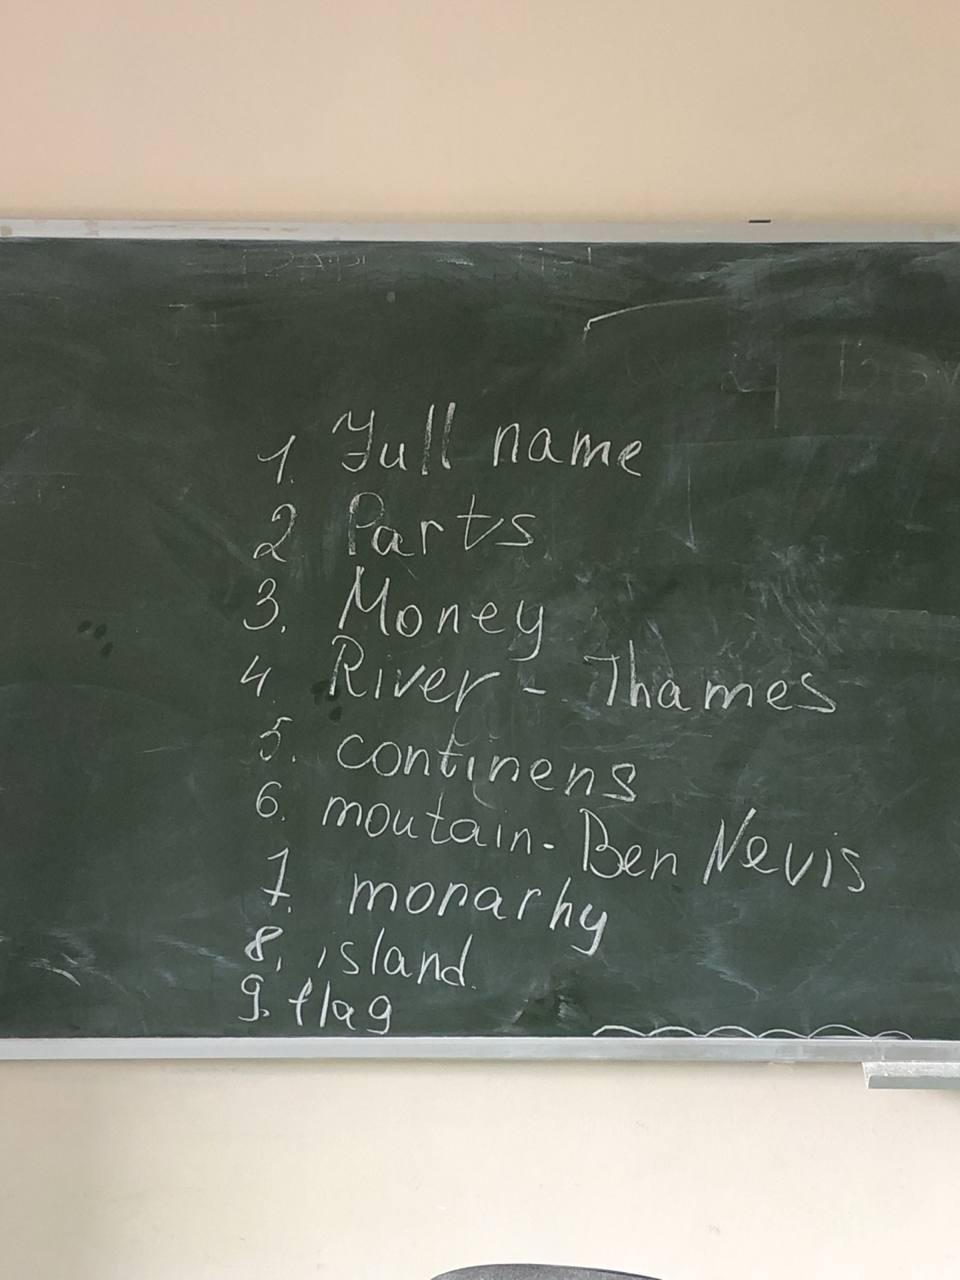 1. Full name
2 Parts
3. Money
4. River - Thames
5. continens
6. moutain - Ben Nevis
7. monarhy
8. island.
9. flag